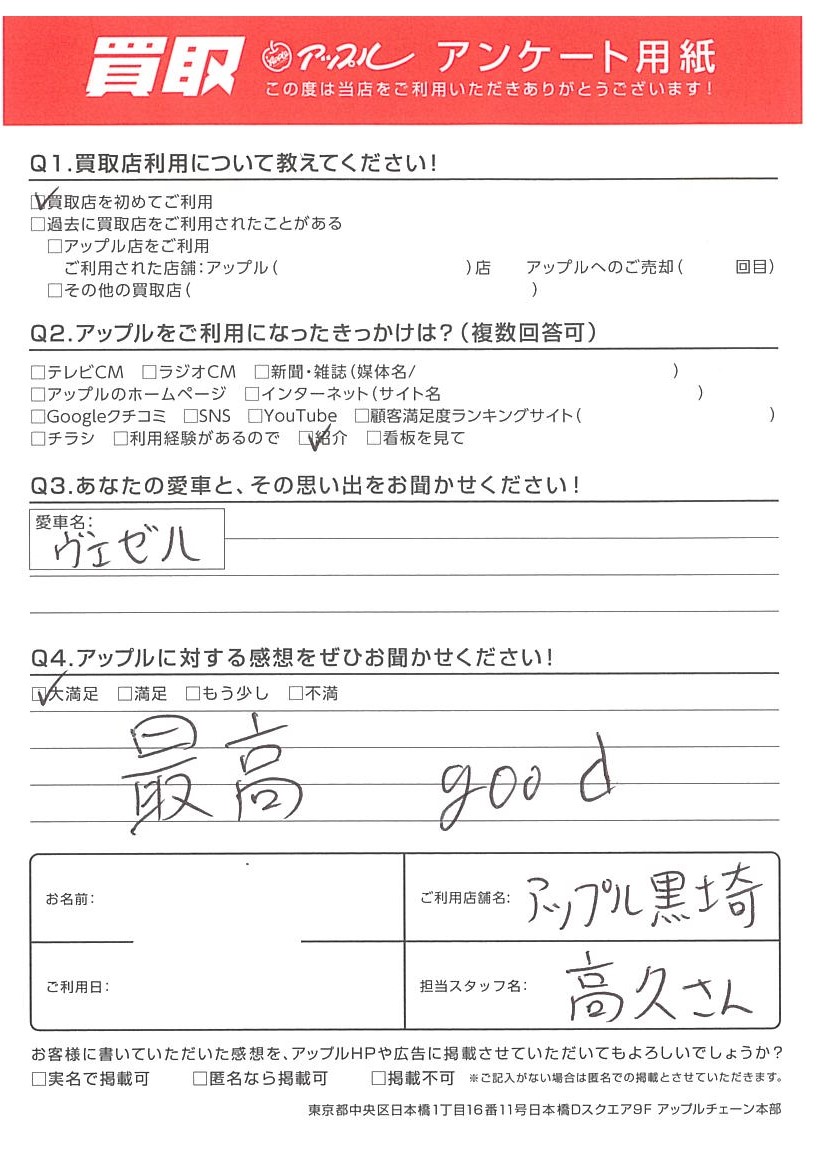 買取 アップル アンケート用紙
この度は当店をご利用いただきありがとうございます！
Q1.買取店利用について教えてください！
☑買取店を初めてご利用
□過去に買取店をご利用されたことがある
□アップル店をご利用
ご利用された店舗：アップル（　　　）店　アップルへのご売却（　　　回目）
□その他の買取店（　　　）
Q2.アップルをご利用になったきっかけは？（複数回答可）
□テレビCM □ラジオCM □新聞・雑誌（媒体名/　　　）
□アップルのホームページ □インターネット（サイト名　　　）
□Googleクチコミ □SNS □YouTube □顧客満足度ランキングサイト（　　　）
□チラシ □利用経験があるので ☑紹介 □看板を見て
Q3.あなたの愛車と、その思い出をお聞かせください！
愛車名：
ヴェゼル
Q4.アップルに対する感想をぜひお聞かせください！
☑大満足 □満足 □もう少し □不満
最高 good
お名前：
ご利用店舗名： アップル黒埼
ご利用日：
担当スタッフ名： 高久さん
お客様に書いていただいた感想を、アップルHPや広告に掲載させていただいてもよろしいでしょうか？
□実名で掲載可 □匿名なら掲載可 □掲載不可 ※ご記入がない場合は匿名での掲載とさせていただきます。
東京都中央区日本橋1丁目16番11号日本橋Dスクエア9F アップルチェーン本部